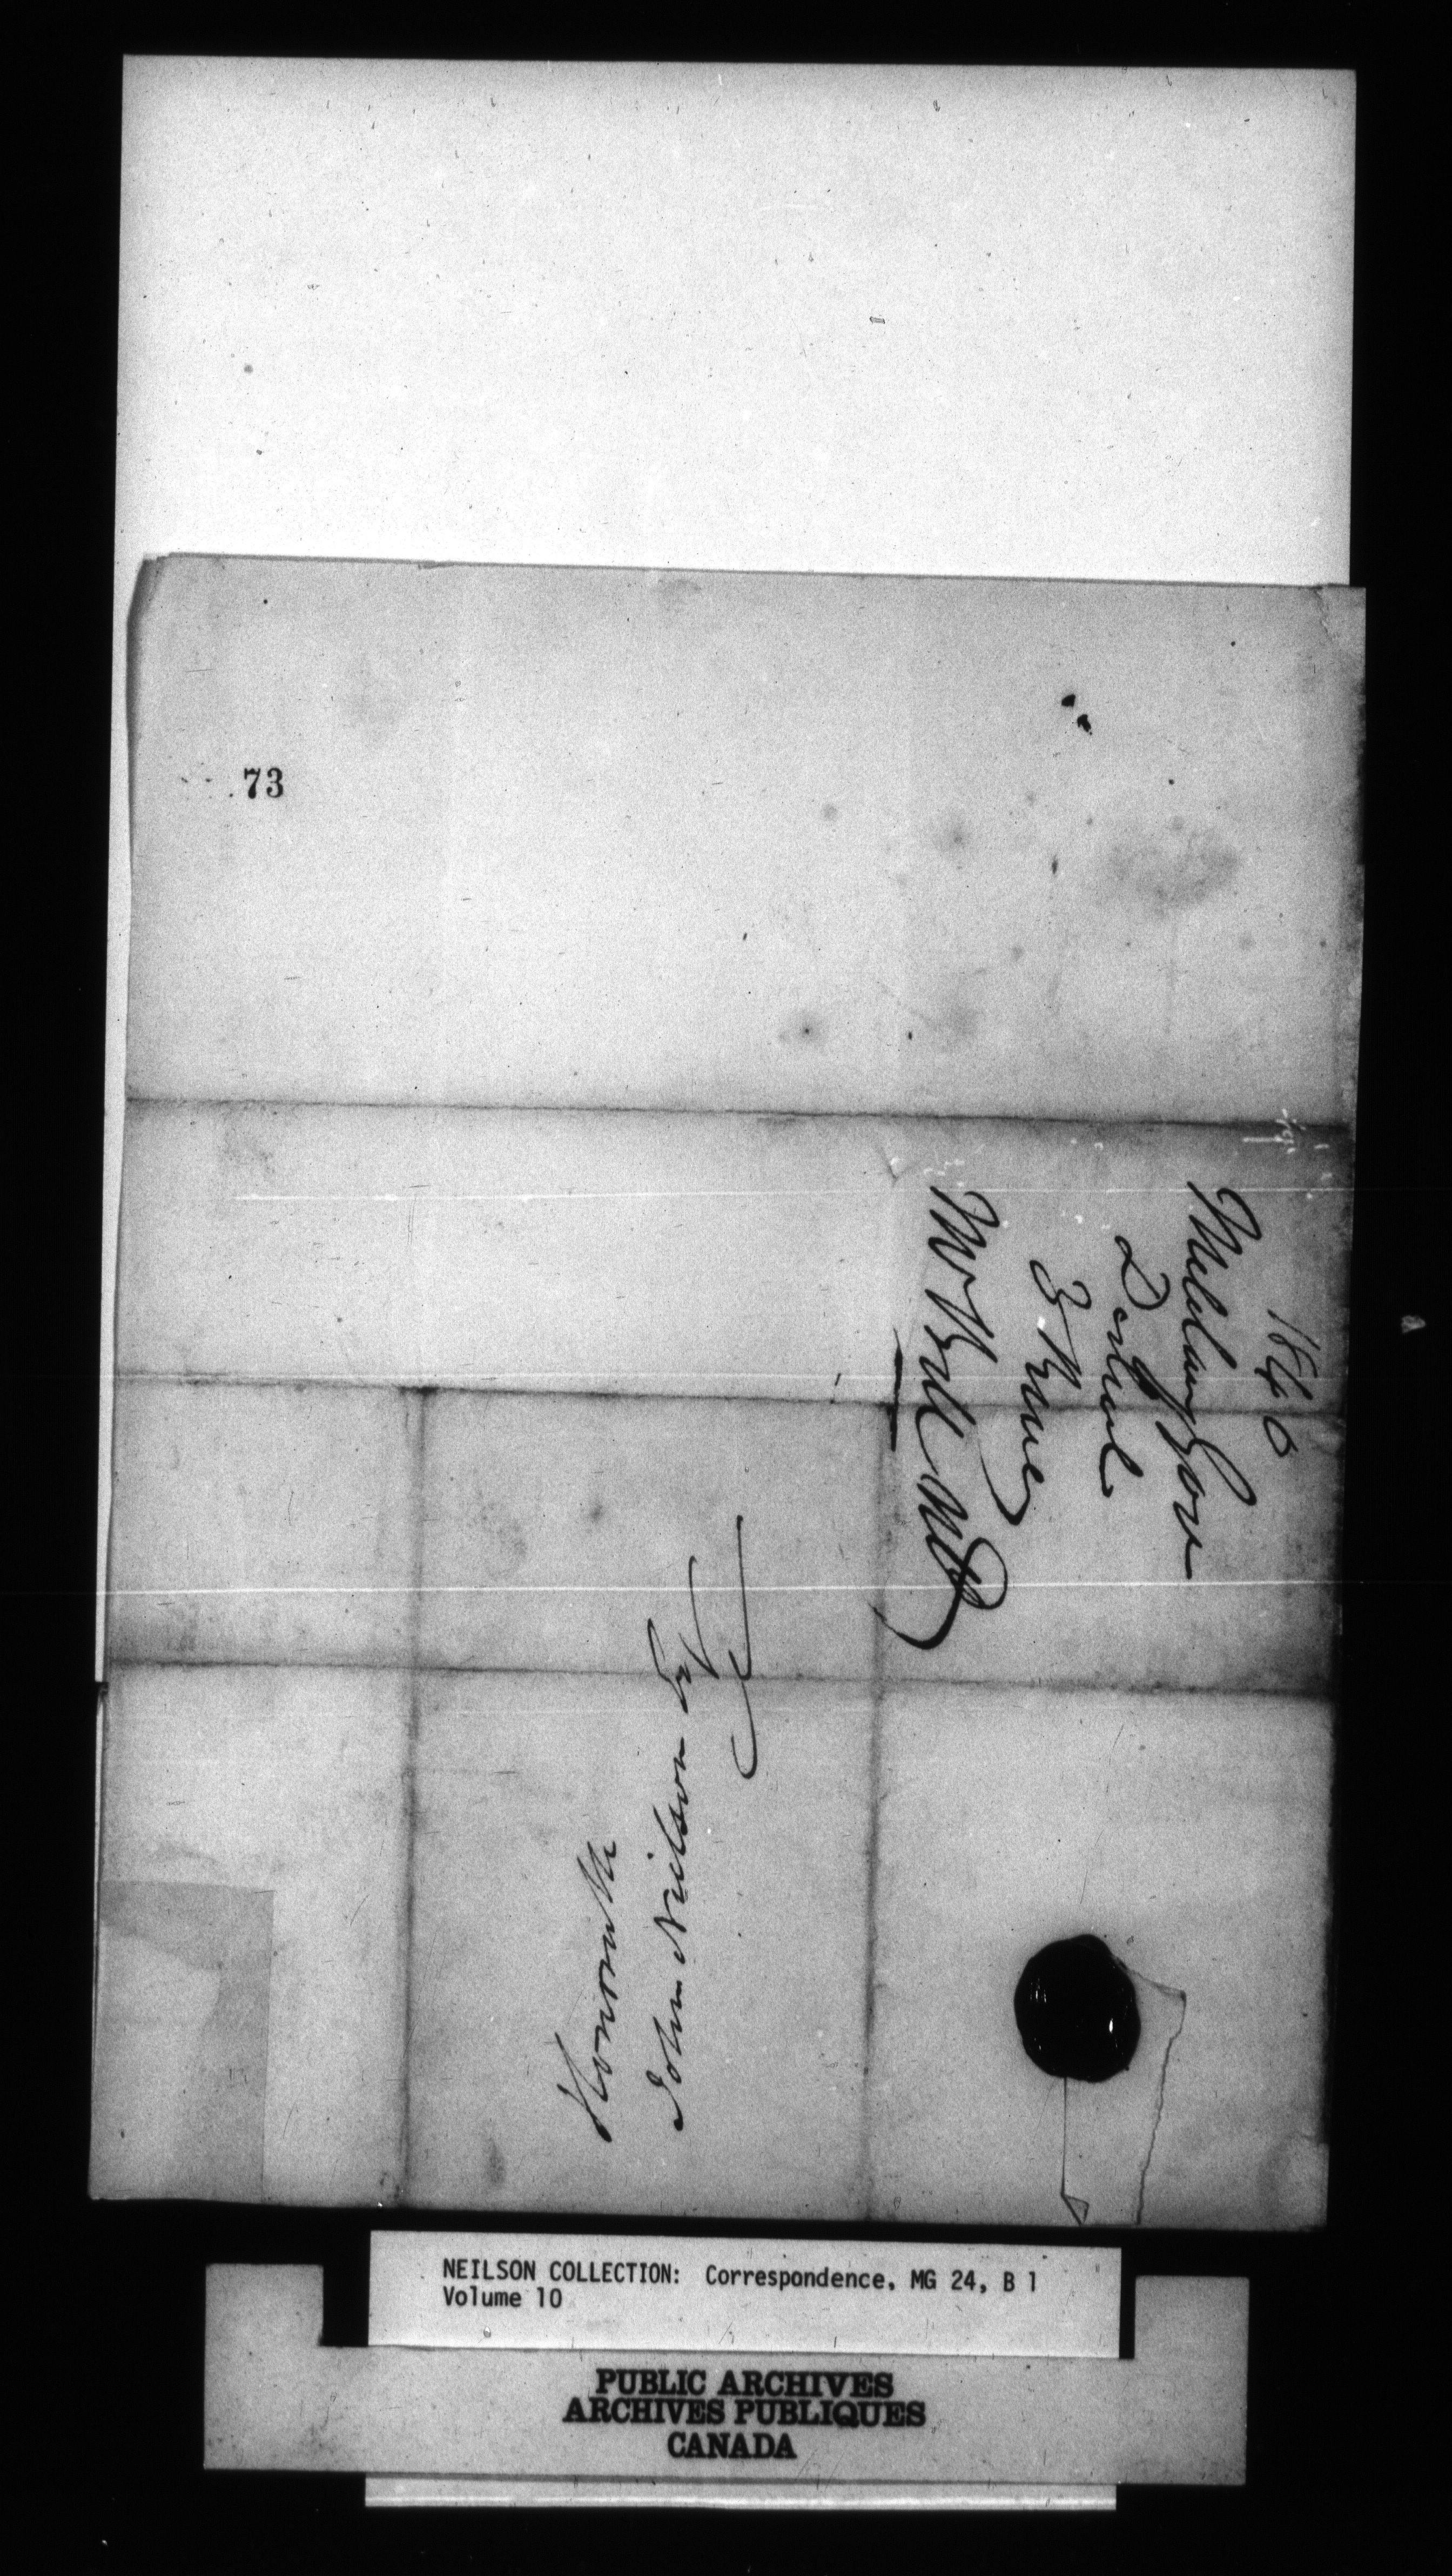 73
1840
Gore
3 June
Honorable
John Neilson Esq
NEILSON COLLECTION: Correspondence, MG 24, B 1
Volume 10
PUBLIC ARCHIVES
ARCHIVES PUBLIQUES
CANADA